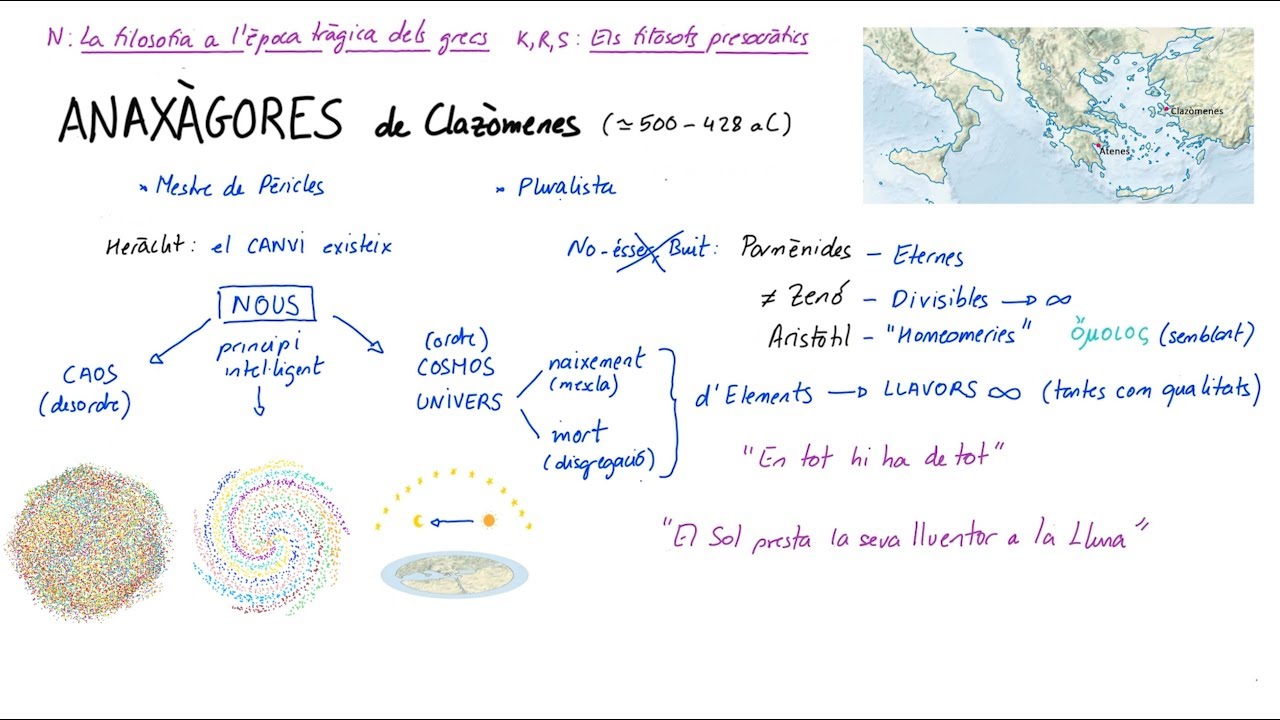 N: La filosofia a l'època tràgica dels grecs K,R,S: Els filòsofs presocràtics
ANAXÀGORES de Clazòmenes (≃ 500 – 428 aC)
Clazòmenes
Atenes
* Mestre de Pèricles
* Pluralista
Heràclit: el CANVI existeix
No-ésser Buit: Parmènides – Eternes
≠ Zenó – Divisibles → ∞
Aristòtil – "Homeomeries" ὅμοιος (semblant)
NOUS
principi
intel·ligent
CAOS
(desordre)
(ordre)
COSMOS
UNIVERS
naixement
(mescla)
mort
(disgregació)
d'Elements → LLAVORS ∞ (tantes com qualitats)
"En tot hi ha de tot"
"El Sol presta la seva lluentor a la Lluna"